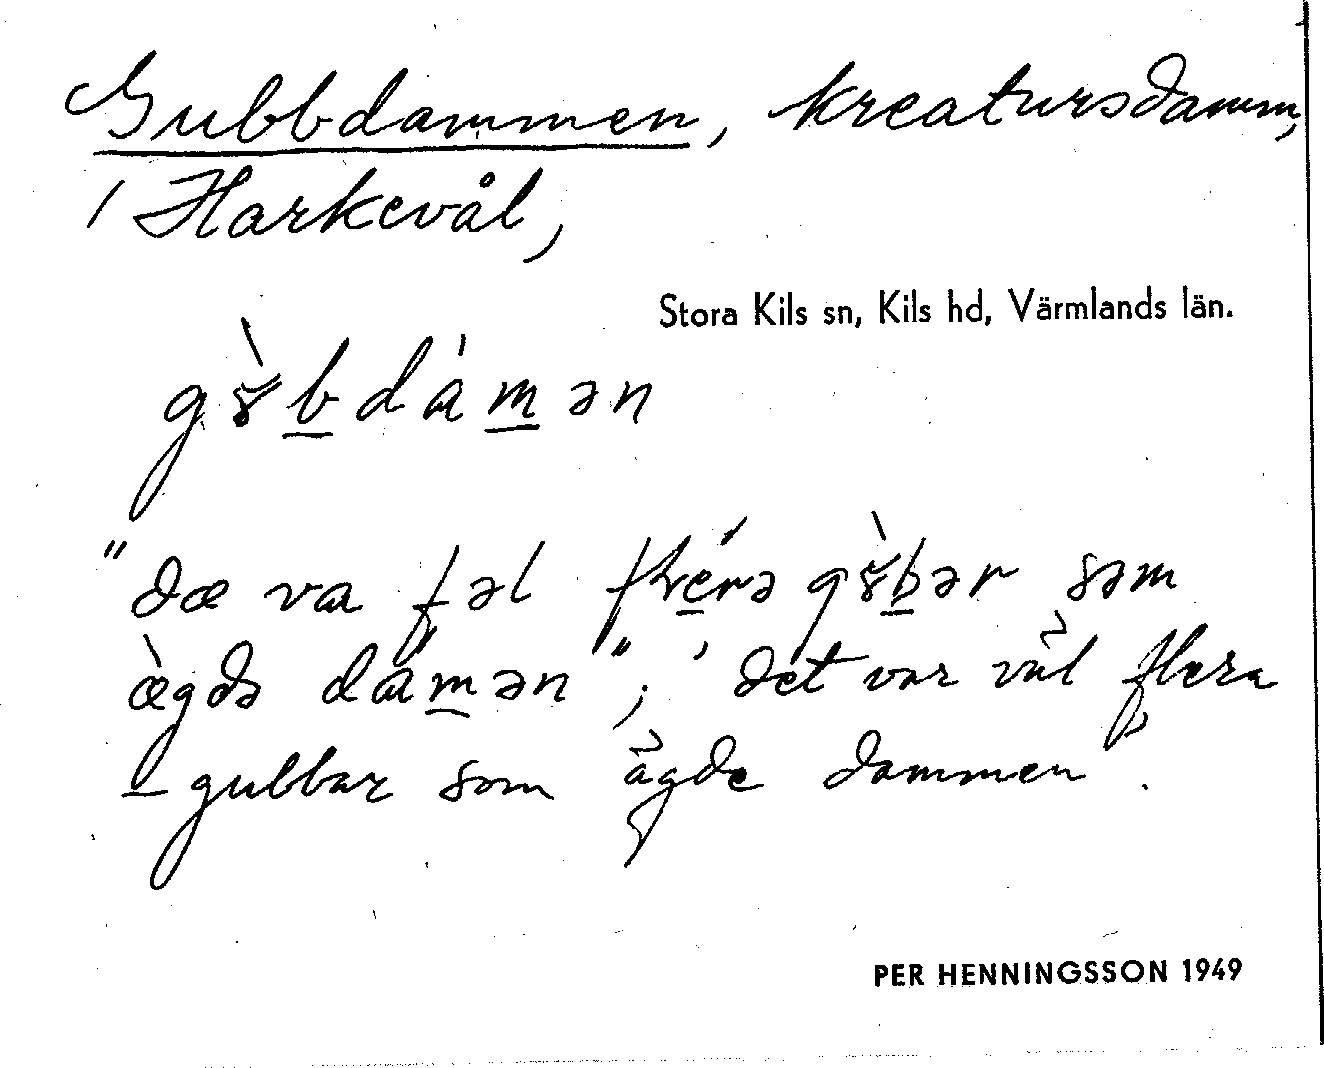 Gubbdammen, kreatursdamm,
/ Harkevål,
Stora Kils sn, Kils hd, Värmlands län.
gɤ̀bdámən
"dæ va fəl flera gɤ̀bər səm
ægdə damən"; 'det var väl flera
gubbar som ägde dammen'.
PER HENNINGSSON 1949